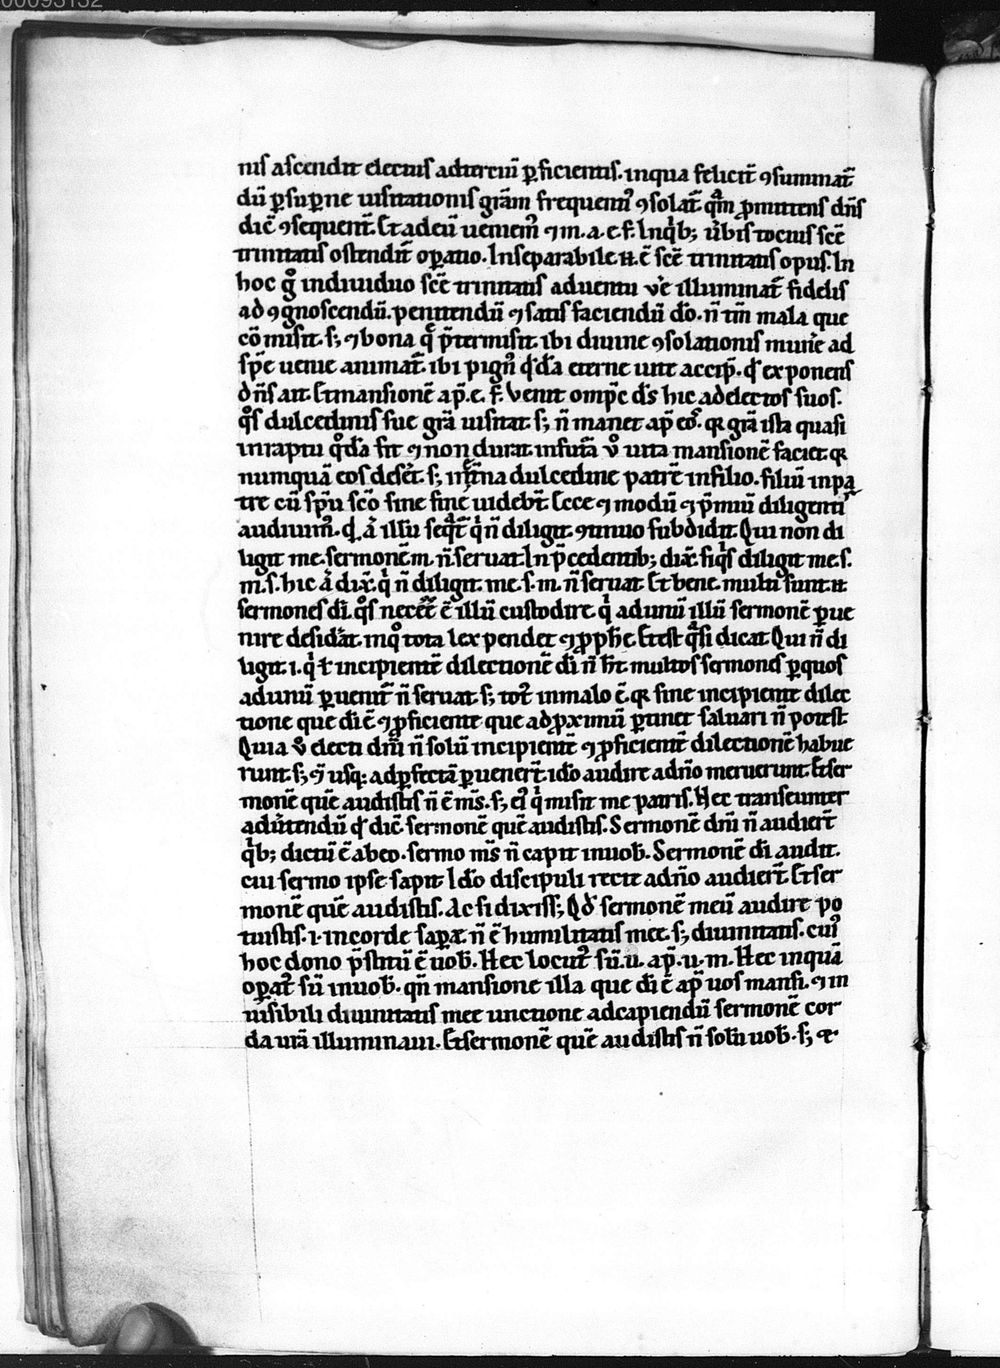 00093132
nis ascendit electus ad tertiũ ꝑficientis. in qua felicit̃ ꝯsummat̃
dũ ꝑ supne uisitationis grãm frequent᷒ ꝯsolat̃ qm̃ ꝓmittens dñs
dic̃ ꝯsequent̃ Et ad eũ ueniem᷒ ⁊ m. a. e. f. In qͥb; ũbis tocius sc̃e
trinitatis ostendit̃ oꝑatio. Inseparabile .n. ẽ sc̃e trinitatis opus. In
hoc gͦ indiuiduo sc̃e trinitatis aduentu ũe illuminat̃ fidelis
ad ꝯgnoscendũ. penitendũ ⁊ satis faciendũ dõ. ñ tm̃ mala que
cõmisit. s; ⁊ bona q̃ p̃termisit. ibi diuine ꝯsolationis mun̾e ad
spẽ uenie animat̃. ibi pign᷒ qͦdã eterne uite accip̃. qd̃ exponens
dñs ait. Et mansionẽ ap̃. e. f. Venit omp̃c d̃s hic ad electos suos.
qͦs dulcedinis sue grã uisitat s; ñ manet ap̃ eos. qꝛ grã ista quasi
in raptu qͦdã fit ⁊ non durat. in futũa ũ uita mansionẽ faciet qꝛ
numquã eos des̾et. s; int̾na dulcedine patrẽ in filio. filiũ in pa
tre cũ sp̃u sc̃o sine fine uidebt̃. Ecce ⁊ modũ ⁊ p̃miũ diligenti᷒
audiuim᷒. qd̃ aͥ illũ seqt̃ qͥ ñ diligit ꝯtinuo subdidit. Qui non di
ligit me. sermonẽ m. ñ seruat. In p̃cedentib; dix̃. siqͥs diligit me. s.
m. s. hic aͥ dix̃. qͥ ñ diligit. me. s. m. ñ seruat. Et bene. multi sunt .n.
sermones dĩ. qͦs necẽe ẽ illũ custodire qͥ ad unũ illũ sermonẽ ꝑue
nire desid̾at. in qͦ tota lex pendet ⁊ ꝓph̃e. Et est qͣsi dicat Qui ñ di
ligit .i. qͥ ł incipientẽ dilectionẽ dĩ ñ ht̃ multos sermones ꝑ quos
ad unũ ꝑuenit̃ ñ seruat. s; tot᷒ in malo ẽ. qꝛ sine incipiente dilec
tione que dĩ ẽ ⁊ ꝓficiente que ad ꝓximũ ꝑtinet saluari ñ potest
Quia ũ electi dnĩ ñ solũ incipientẽ ⁊ ꝓficientẽ dilectionẽ habue
runt. s; ⁊ usq; ad ꝑfectã ꝑuener̃t. idõ audire a dño meruerunt. Et ser
monẽ quẽ audistis ñ ẽ m̃s. s; ei᷒ qͥ misit me patris. Hec transeunter
adũtendũ qd̃ dic̃ sermonẽ quẽ audistis. Sermonẽ dnĩ ñ audiert̃
qͥb; dictũ ẽ ab eo. sermo m̃s ñ capit in uob̃. Sermonẽ dĩ audit.
cui sermo ipse sapit. Idõ discipuli recte a dño audiert̃. Et ser
monẽ quẽ audistis. Ac si dixiss; Qd̃ sermonẽ meũ audire po
tuistis. i. in corde saꝑe. ñ ẽ humilitatis mee. s; diuinitatis. cui᷒
hoc dono p̃stitũ ẽ uob̃. Hec locut᷒ sũ. u. ap̃. u. m. Hec inquã
oꝑat᷒ sũ in uob̃. qñ mansione illa que dĩ ẽ ap̃ uos mansi. ⁊ in
uisibili diuinitatis mee unctione ad capiendũ sermonẽ cor
da urã illuminaui. Et sermonẽ quẽ audistis ñ solũ uob̃. s; ⁊